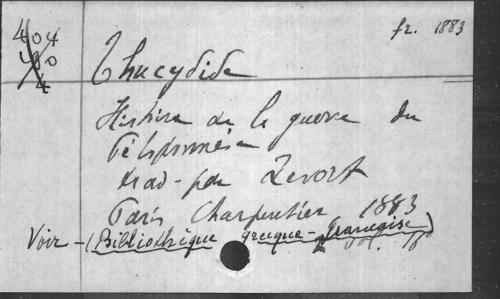 404
fr. 1883
Thucydide
Histoire de la guerre du
Péloponnèse
trad. par Zevort
Paris Charpentier 1883
Voir - (Bibliothèque grecque-française)